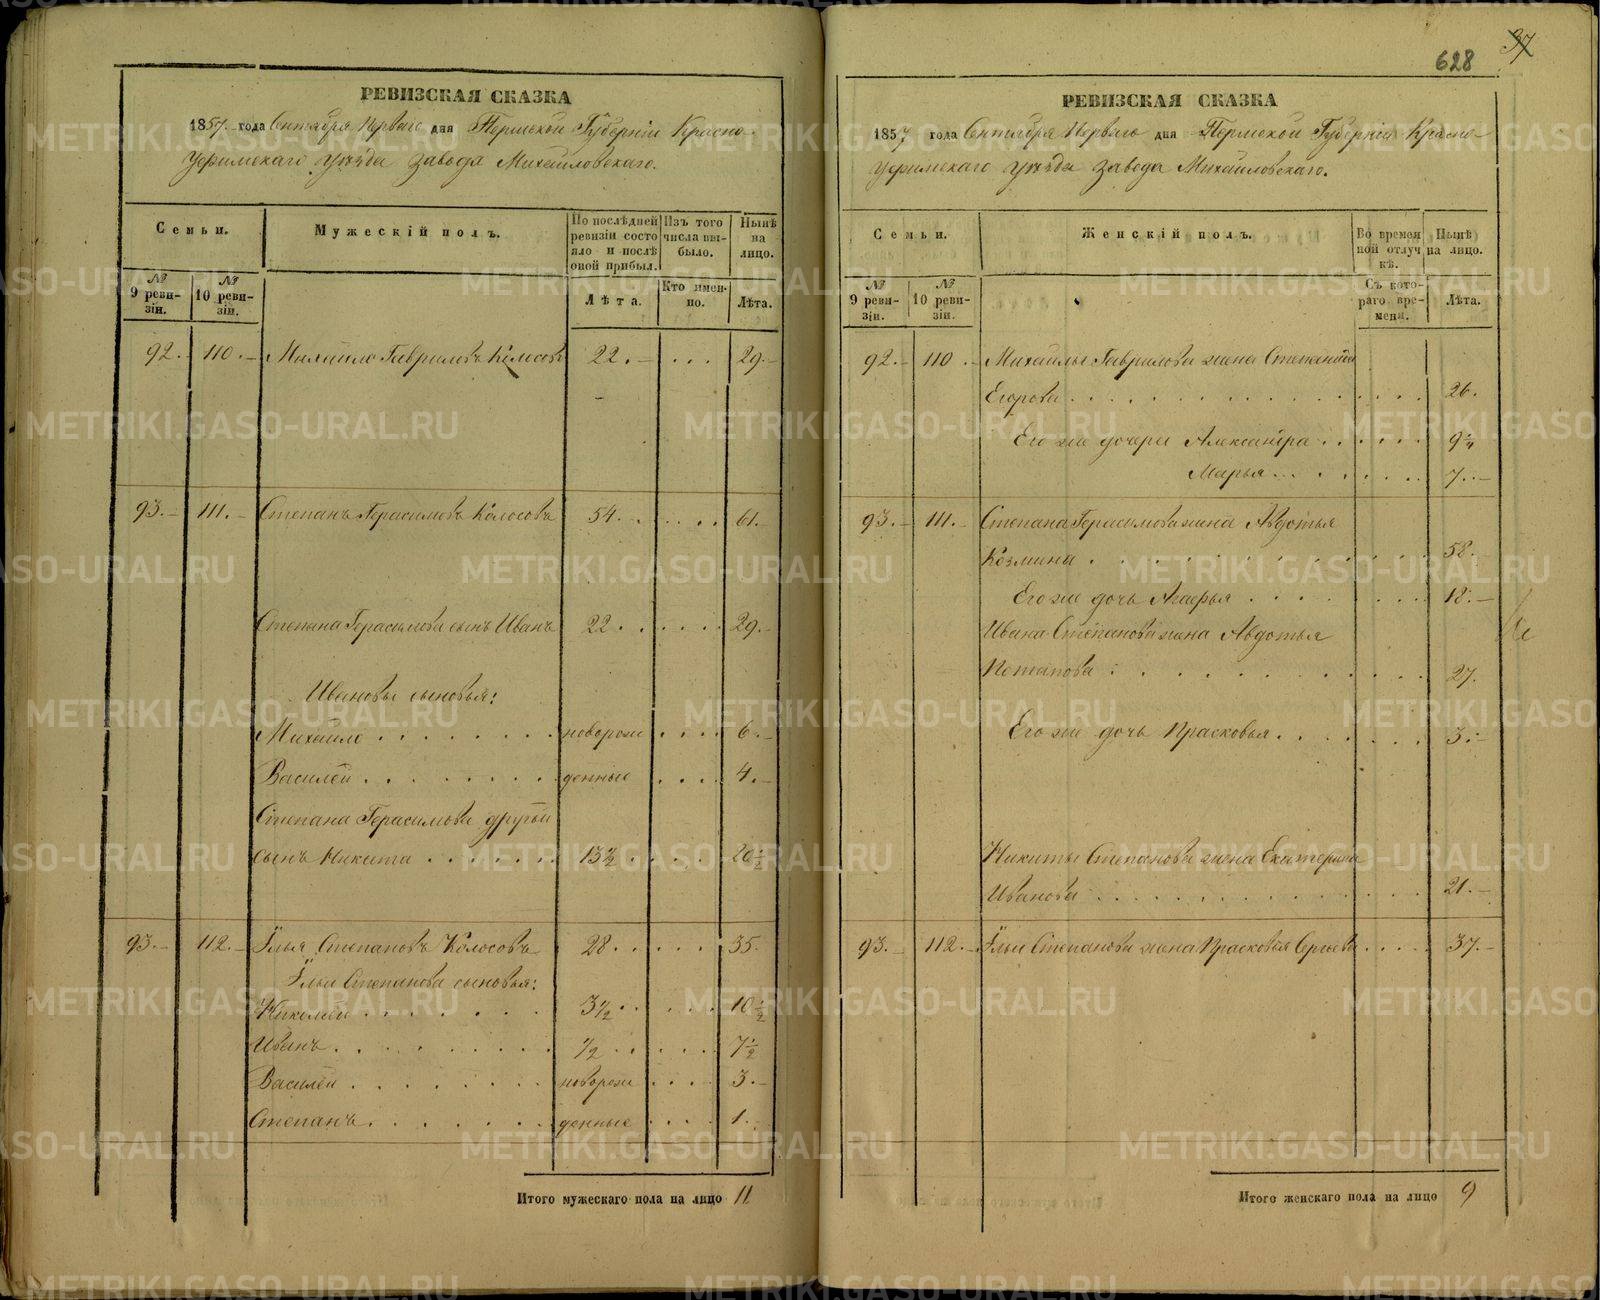 РЕВИЗСКАЯ СКАЗКА
1857 года Сентября Перваго дня Пермской Губерніи Красно-
уфимскаго уѣзда завода Михайловскаго.
Семьи.
Мужескій полъ.
По послѣдней ревизіи состояло и послѣ оной прибыл.
Изъ того числа выбыло.
Нынѣ на лицо.
№ 9 ревизіи.
№ 10 ревизіи.
Лѣта.
Кто именно.
Лѣта.
92. 110. Михайло Гавриловъ Колосовъ 22. 29
93. 111. Степанъ Герасимовъ Колосовъ 54. 61.
Степана Герасимова сынъ Иванъ 22. 29.
Ивановы сыновья:
Михайло новорож 6.
Василей денные 4.
Степана Герасимова другой
сынъ Никита 13½ 20½
93. 112. Илья Степановъ Колосовъ 28. 35.
Ильи Степанова сыновья:
Николай 3½ 10½
Иванъ ½ 7½
Василей новорож 3.
Степанъ денные 1.
Итого мужескаго пола на лицо 11
628
37
РЕВИЗСКАЯ СКАЗКА
1857 года Сентября Перваго дня Пермской Губерніи Красно-
уфимскаго уѣзда завода Михайловскаго.
Семьи.
Женскій полъ.
Во временной отлучкѣ.
Нынѣ на лицо.
№ 9 ревизіи.
№ 10 ревизіи.
Съ котораго времени.
Лѣта.
92. 110. Михайлы Гаврилова жена Степанида
Егорова 26.
Его же дочери Александра 9¼
Марья 7.
93. 111. Степана Герасимова жена Авдотья
Козмина 58.
Его же дочь Агафья 18.
Ивана Степанова жена Авдотья
Потапова 27.
Его же дочь Прасковья 3.
Никиты Степанова жена Екатерина
Иванова 21.
93. 112. Ильи Степанова жена Прасковья Сергѣева 37.
Итого женскаго пола на лицо 9
METRIKI.GASO-URAL.RU